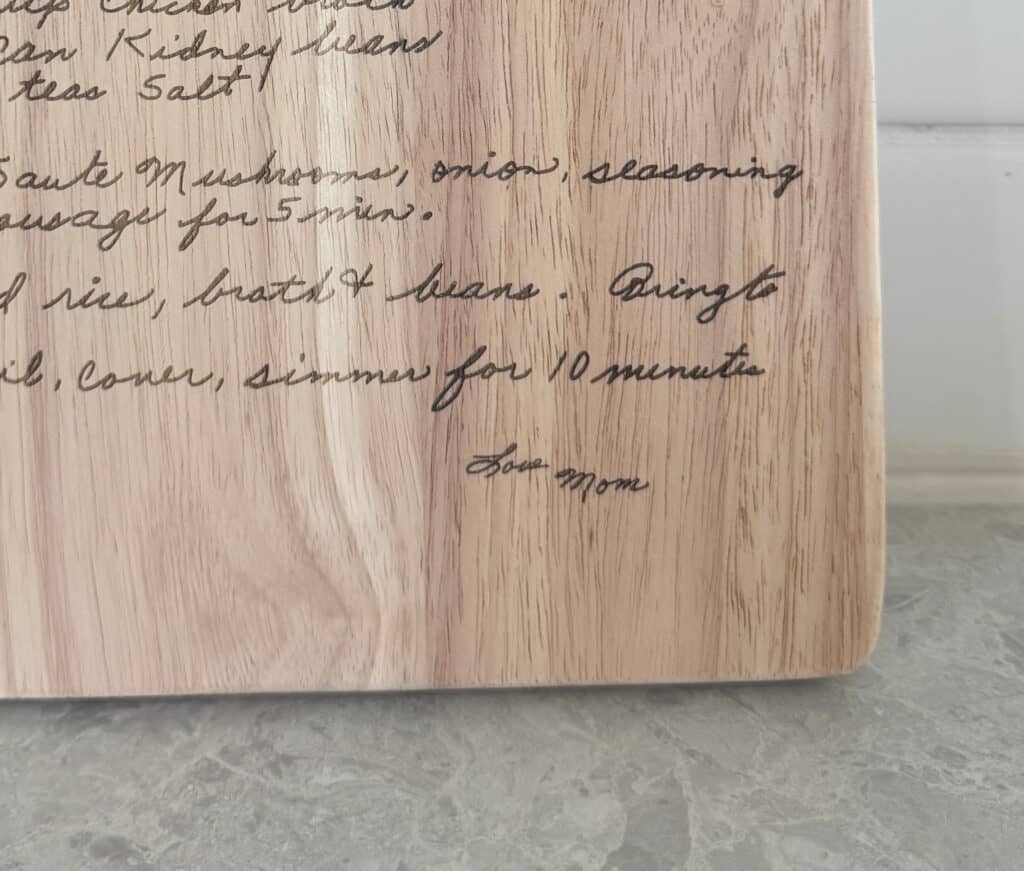 cups chicken broth
can Kidney beans
teas Salt
Saute Mushrooms, onion, seasoning
ousage for 5 min.
d rice, broth & beans. Bring to
il, cover, simmer for 10 minutes
Love Mom